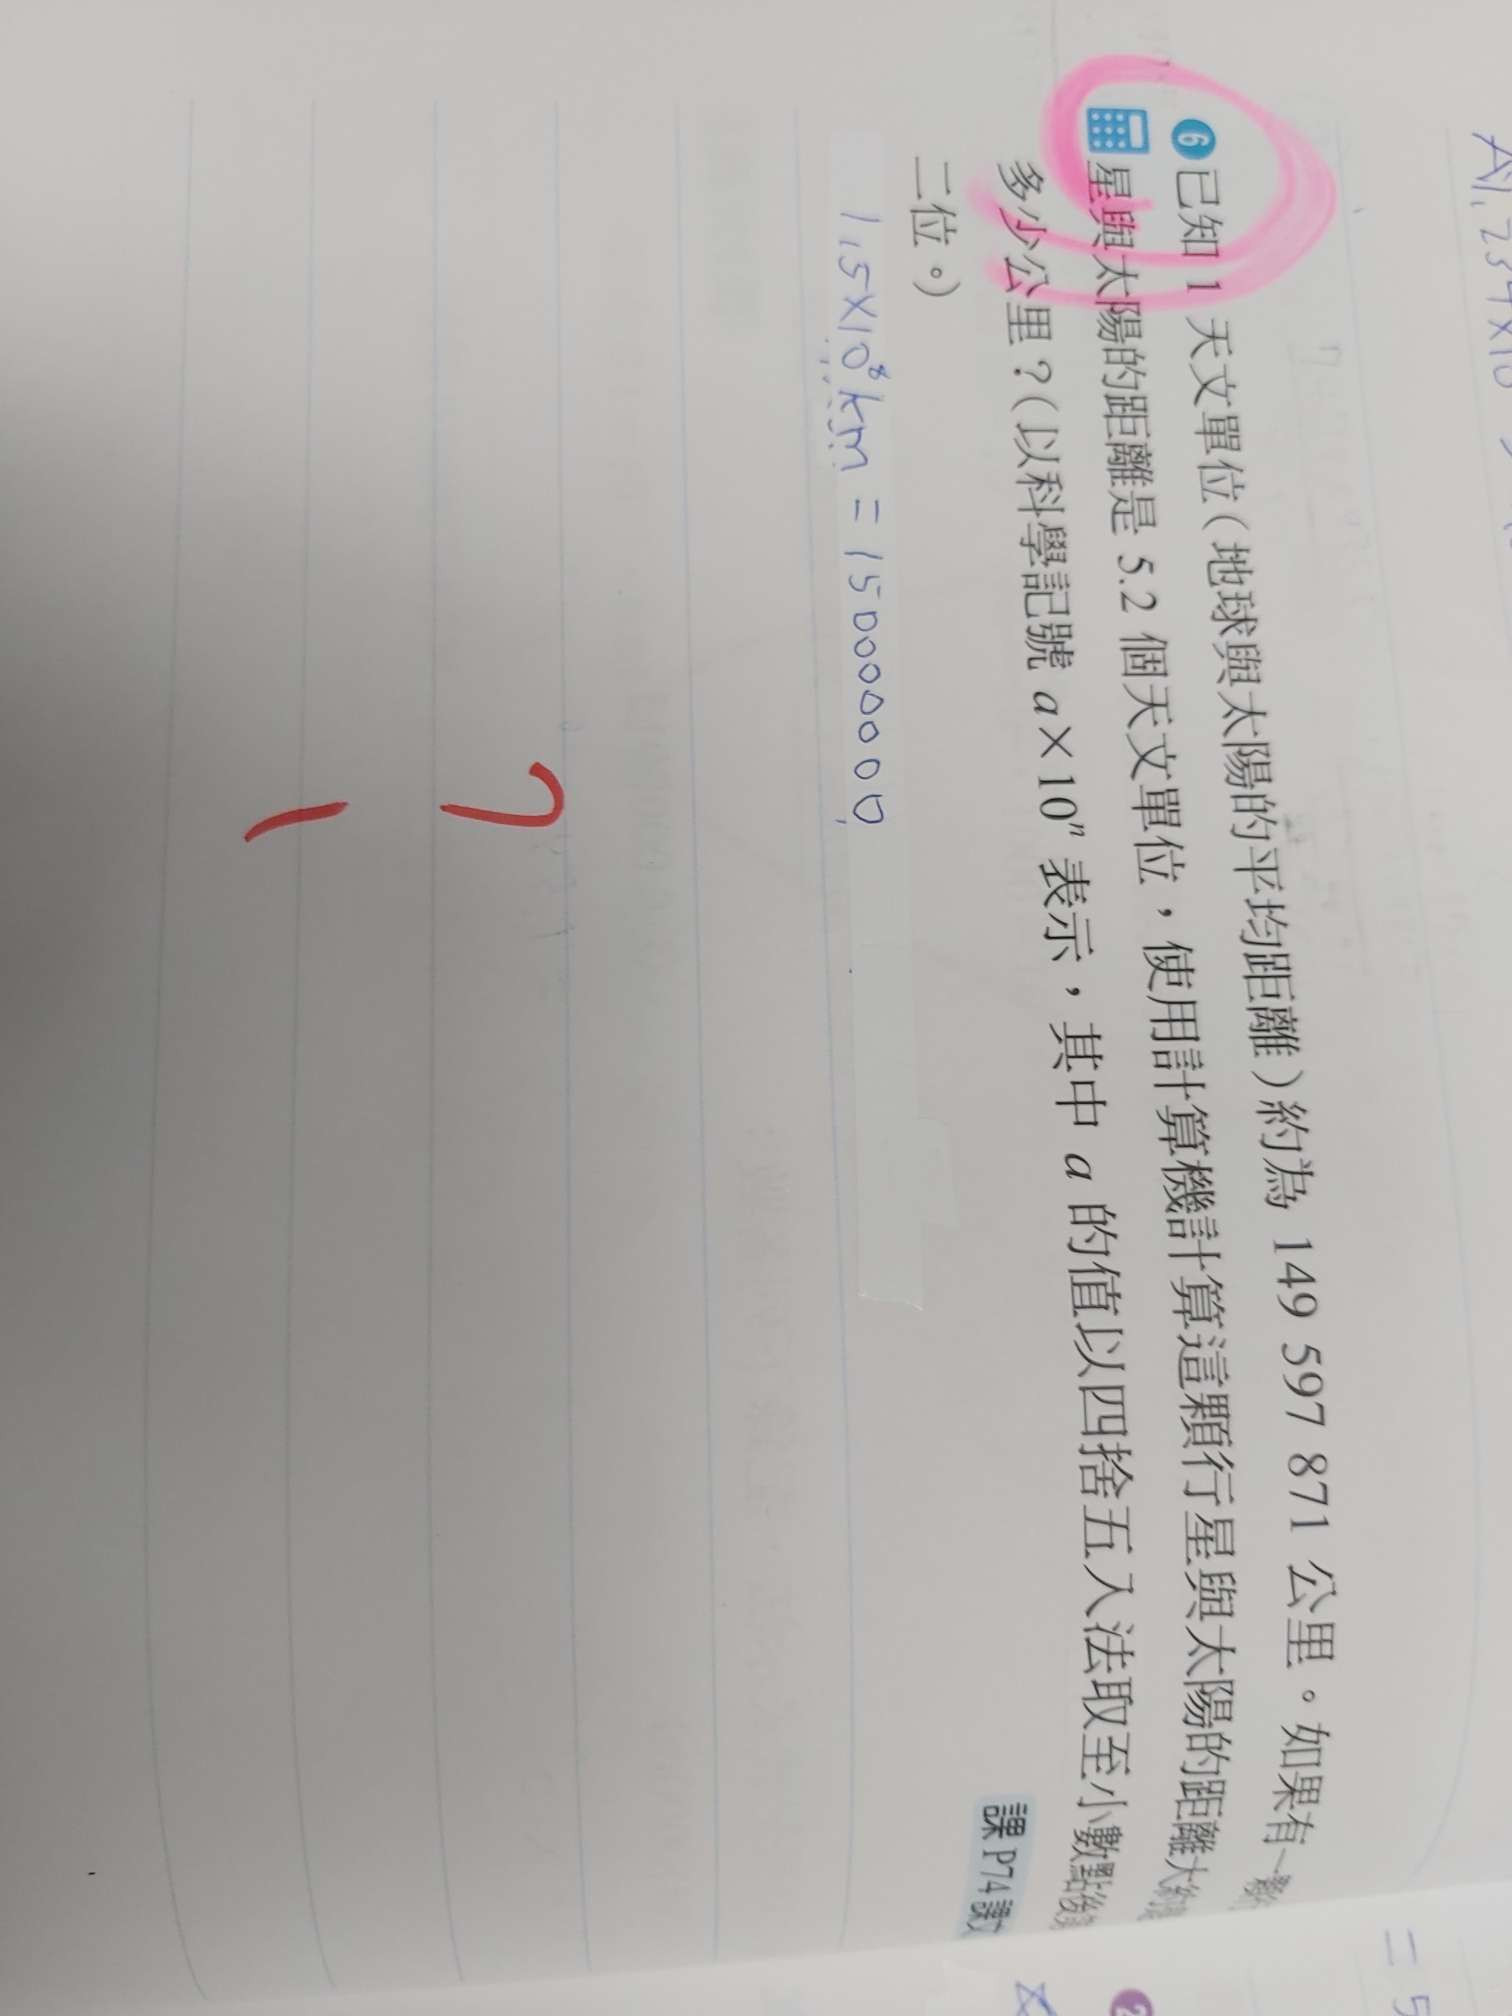 A1.234×10
6 已知 1 天文單位(地球與太陽的平均距離)約為 149 597 871 公里。如果有一顆行
星與太陽的距離是 5.2 個天文單位,使用計算機計算這顆行星與太陽的距離大約是
多少公里?(以科學記號 a×10ⁿ 表示,其中 a 的值以四捨五入法取至小數點後第
二位。)
課 P74 課文
1.5×10⁸km = 150000000
= 5
2